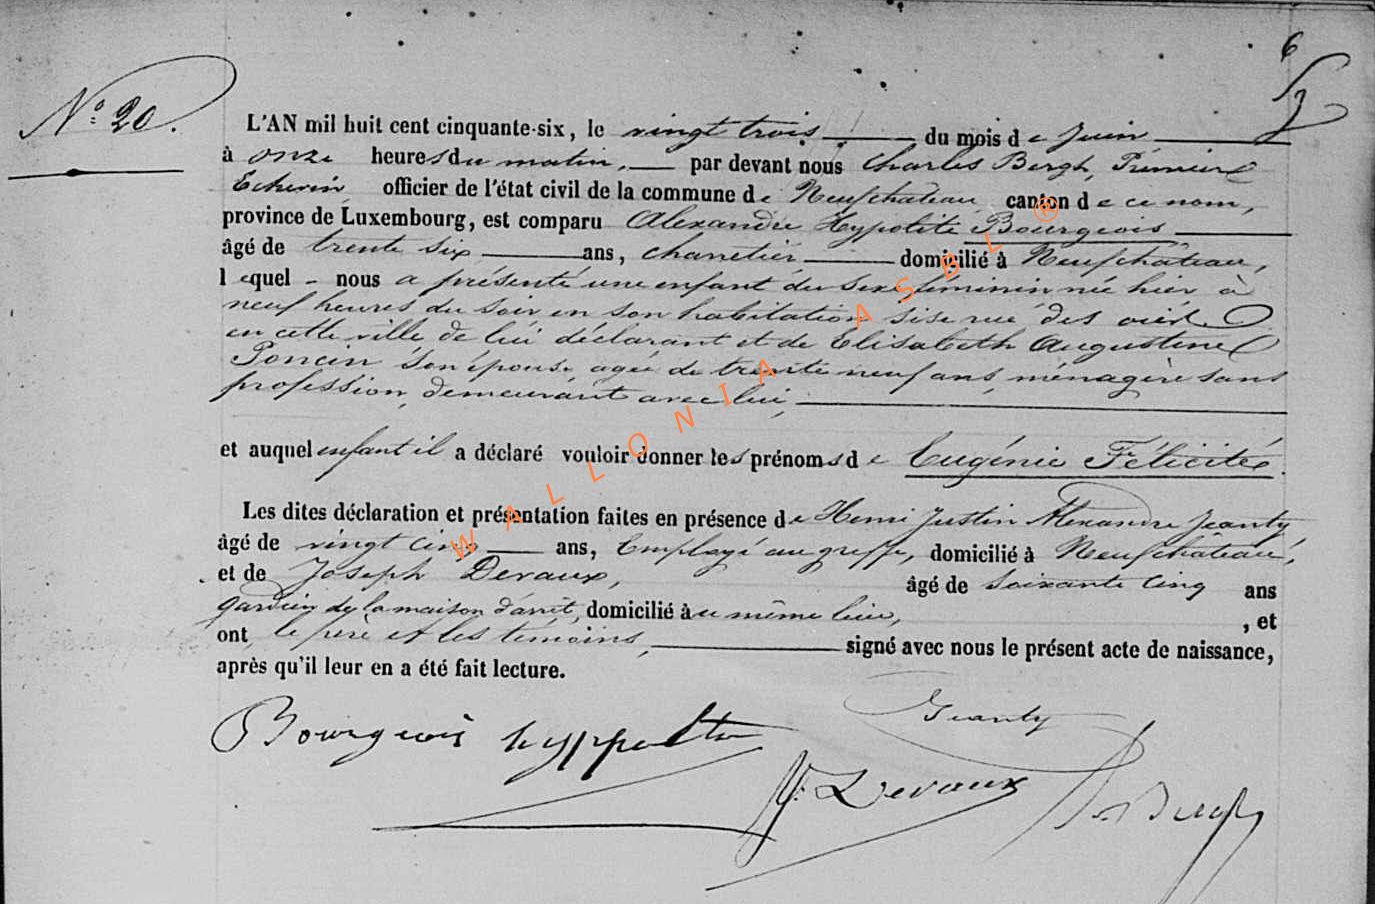 6
N° 20.
L'AN mil huit cent cinquante-six, le vingt trois du mois de Juin
à onze heures du matin, par devant nous Charles Bergh, Premier
Echevin officier de l'état civil de la commune de Neufchateau canton de ce nom,
province de Luxembourg, est comparu Alexandre Hypolite Bourgeois
âgé de trente six ans, charretier domicilié à Neufchâteau,
lequel nous a présenté une enfant du sexe féminin née hier à
neuf heures du soir en son habitation sise rue des
en cette ville de lui déclarant et de Elisabeth Augustine
Poncin son épouse agée de trente neuf ans, ménagère sans
profession, demeurant avec lui,
et auquel enfant il a déclaré vouloir donner les prénoms de Eugénie Félicité.
Les dites déclaration et présentation faites en présence de Henri Justin Alexandre Jeanty
âgé de vingt cinq ans, Employé au greffe, domicilié à Neufchâteau,
et de Joseph Devaux, âgé de soixante cinq ans
gardien de la maison d'arrêt, domicilié au même lieu, , et
ont le père et les témoins, signé avec nous le présent acte de naissance,
après qu'il leur en a été fait lecture.
Bourgeois hyppolite
Jeanty
J. Devaux
Bergh
WALLONIA ASBL ®